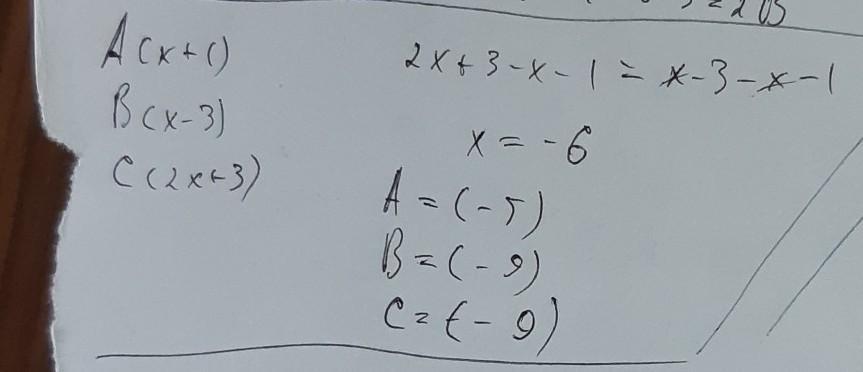 = 2B
A(x+1)
B(x-3)
C(2x+3)
2x+3-x-1 = x-3-x-1
x = -6
A = (-5)
B = (-9)
C = (-9)